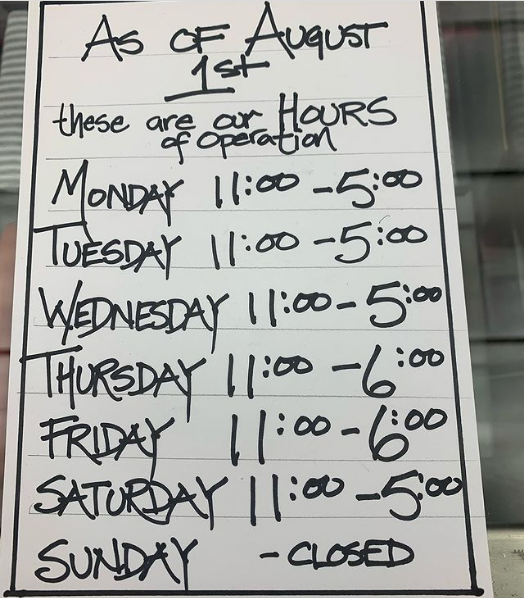 As of August
1st
these are our Hours
of operation
Monday 11:00 - 5:00
Tuesday 11:00 - 5:00
Wednesday 11:00 - 5:00
Thursday 11:00 - 6:00
Friday 11:00 - 6:00
Saturday 11:00 - 5:00
Sunday - Closed